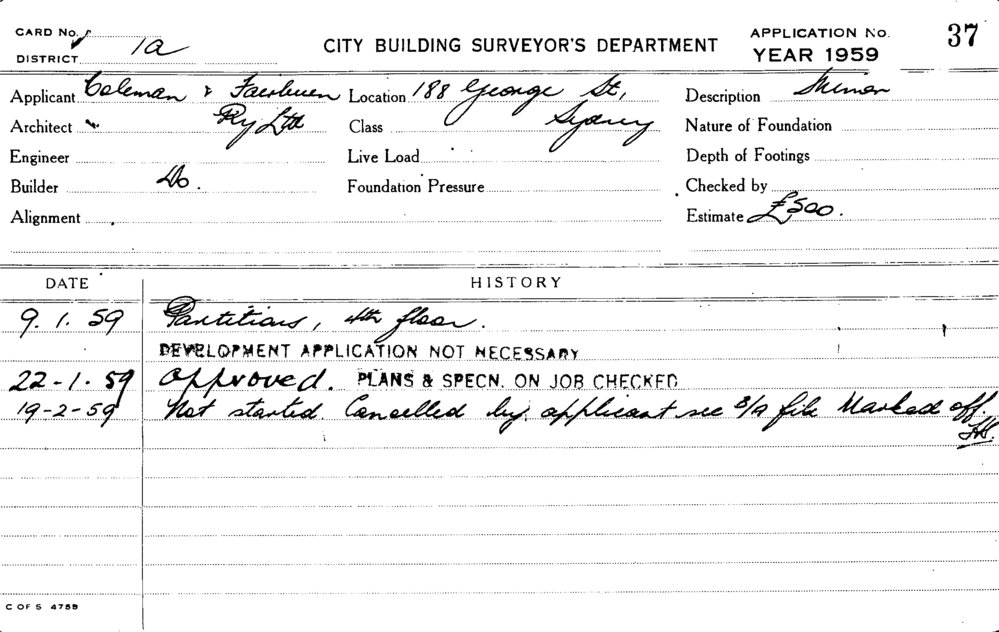 CARD No.
DISTRICT 1a
CITY BUILDING SURVEYOR'S DEPARTMENT
APPLICATION No. 37
YEAR 1959
Applicant Coleman & Location 188 George St, Description Minor
Architect Pty Ltd Class Sydney Nature of Foundation
Engineer Live Load Depth of Footings
Builder Do. Foundation Pressure Checked by
Alignment Estimate £500.
DATE HISTORY
9.1.59 Partitions, 4th floor.
DEVELOPMENT APPLICATION NOT NECESSARY
22-1-59 Approved. PLANS & SPECN. ON JOB CHECKED
19-2-59 Not started. Cancelled by applicant see file Marked off.
C OF S 475B